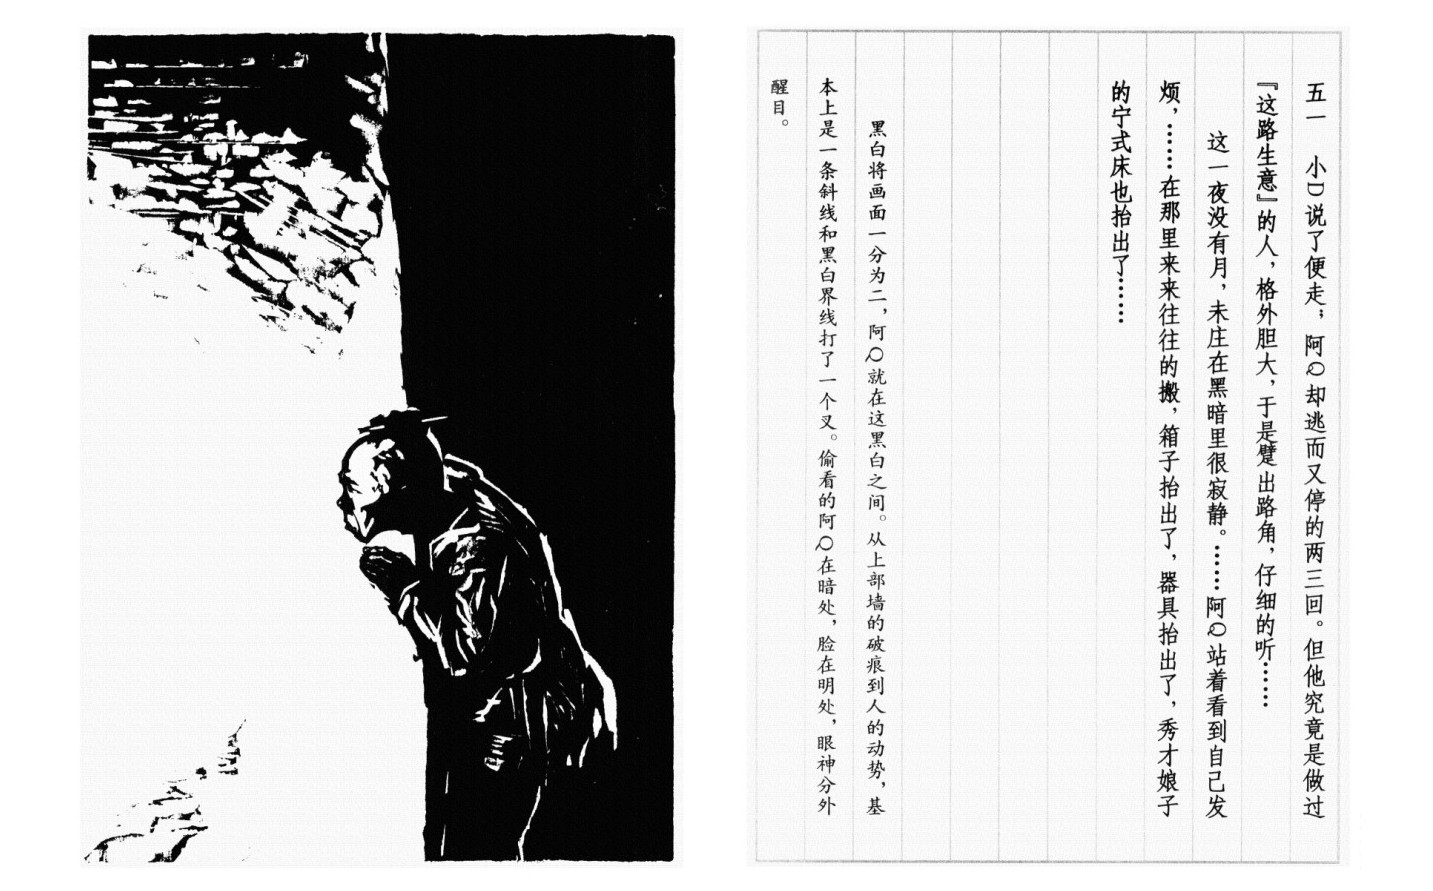 五一　小D说了便走；阿Q却逃而又停的两三回。但他究竟是做过
『这路生意』的人，格外胆大，于是躄出路角，仔细的听……
这一夜没有月，未庄在黑暗里很寂静。……阿Q站着看到自己发
烦，……在那里来来往往的搬，箱子抬出了，器具抬出了，秀才娘子
的宁式床也抬出了……
黑白将画面一分为二，阿Q就在这黑白之间。从上部墙的破痕到人的动势，基
本上是一条斜线和黑白界线打了一个叉。偷看的阿Q在暗处，脸在明处，眼神分外
醒目。